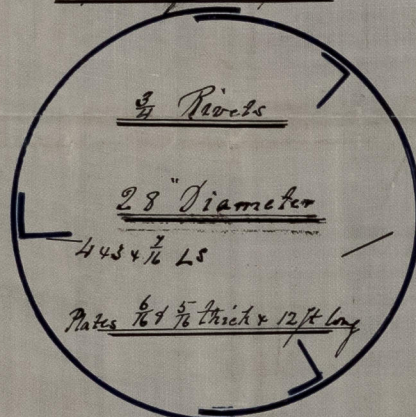 3/4 Rivets
28" Diameter
4 x 3 x 7/16 Ls
Plates 6/16 & 5/16 thick x 12 ft long